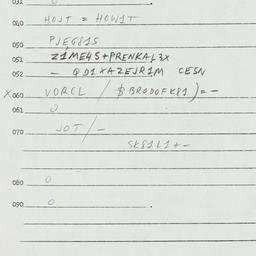 031 0
040 HOJT = HOW1T
050 PJEG81S
051 Z1ME4S+PRENKAL3X
052 - QD1XAZEJR1M CESN
X060 VORCL / $BRODOFK81)=-
061 0
070 JOT/-
SK81L1+-
080 0
090 0